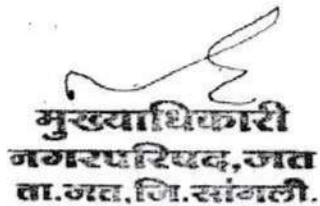 मुख्याधिकारी
नगरपरिषद,जत
ता.जत,जि.सांगली.